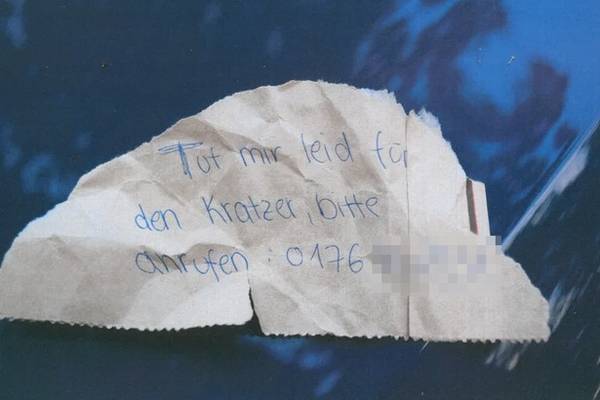 Tut mir leid für
den Kratzer, bitte
anrufen : 0176